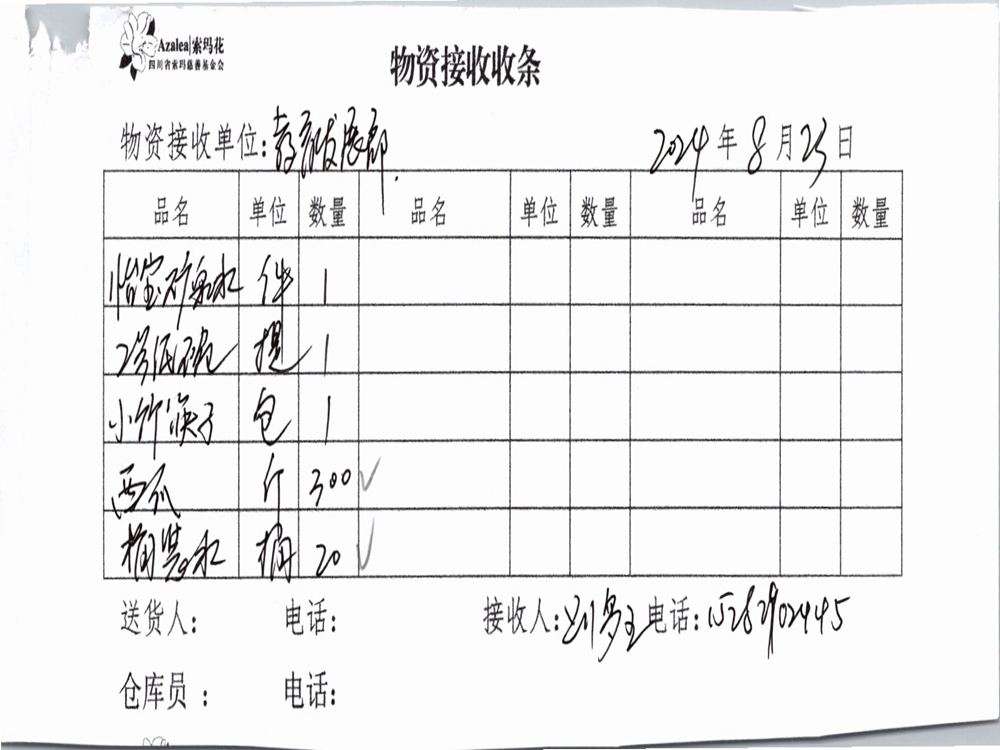 Azalea|索玛花
四川省索玛慈善基金会
物资接收收条
物资接收单位:教育发展部.
2024年8月23日
品名 单位 数量 品名 单位 数量 品名 单位 数量
怡宝矿泉水 件 1
2号低 提 1
小竹筷子 包 1
西瓜 斤 300 ✓
桶装水 桶 20 ✓
送货人: 电话: 接收人: 电话:15282902445
仓库员: 电话: